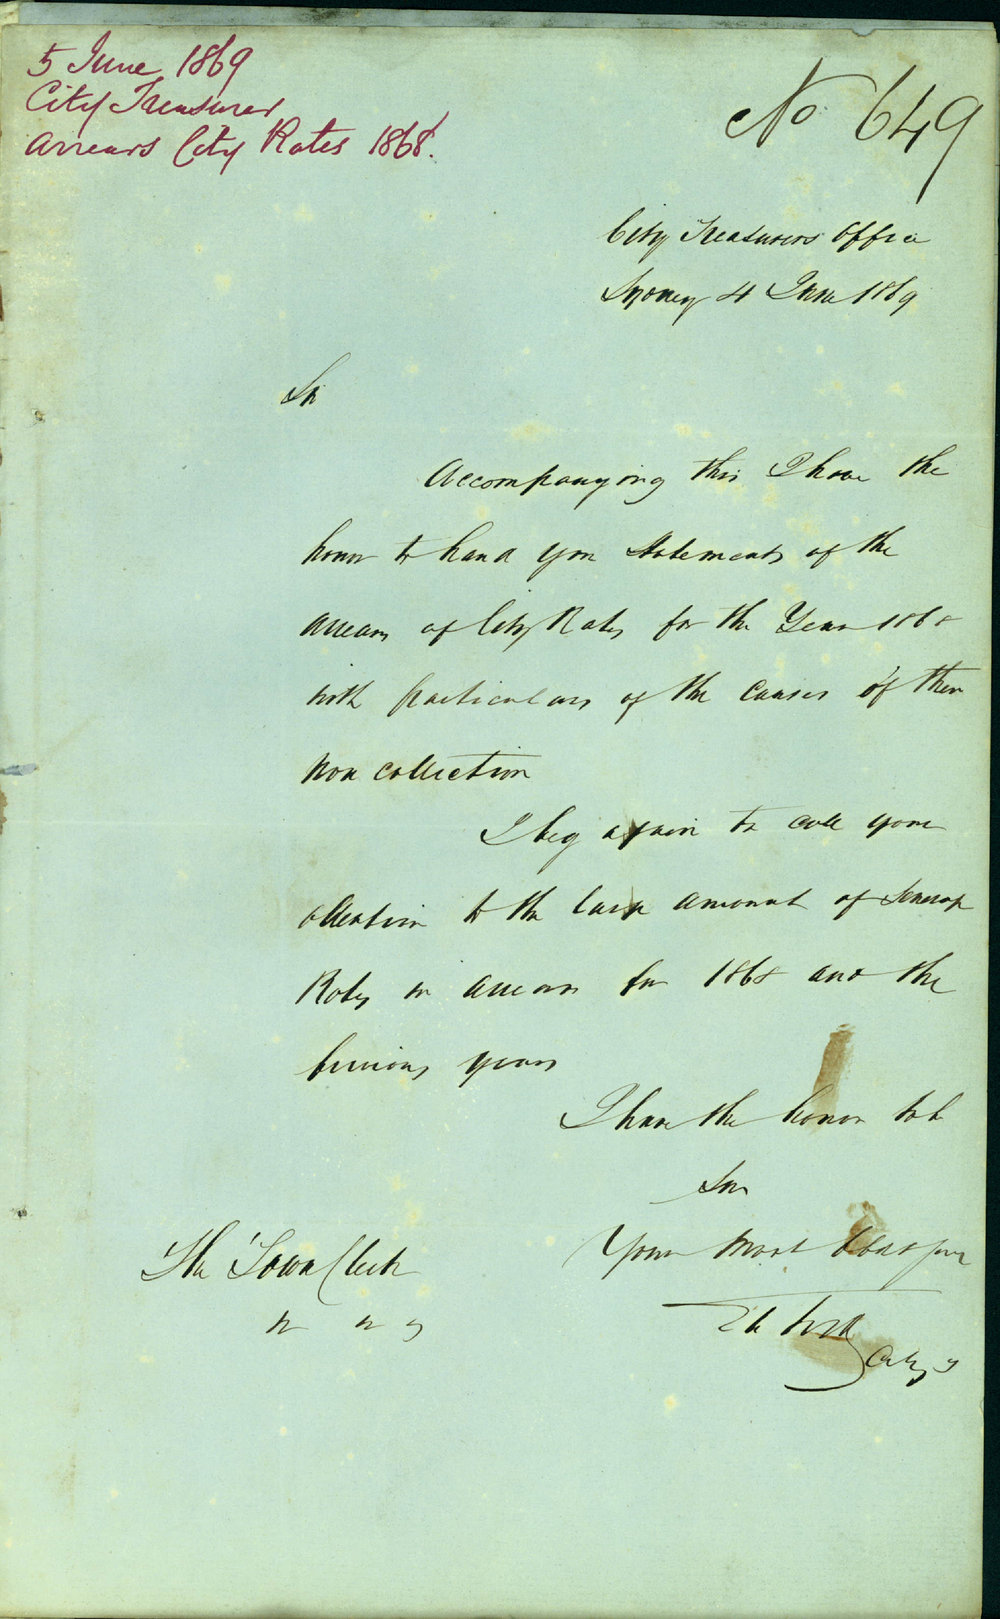 5 June 1869
City Treasurer
Arrears City Rates 1868.
No 649
City Treasurers Office
Sydney 4 June 1869
Sir
Accompanying this I have the
honor to hand you Statements of the
arrears of City Rates for the Year 1868
with particulars of the causes of their
non collection
I beg again to call your
attention to the large amount of Sewerage
Rates in arrear for 1868 and the
previous years
I have the honor to be
Sir
Your most Obdt Servt
The Town Clerk